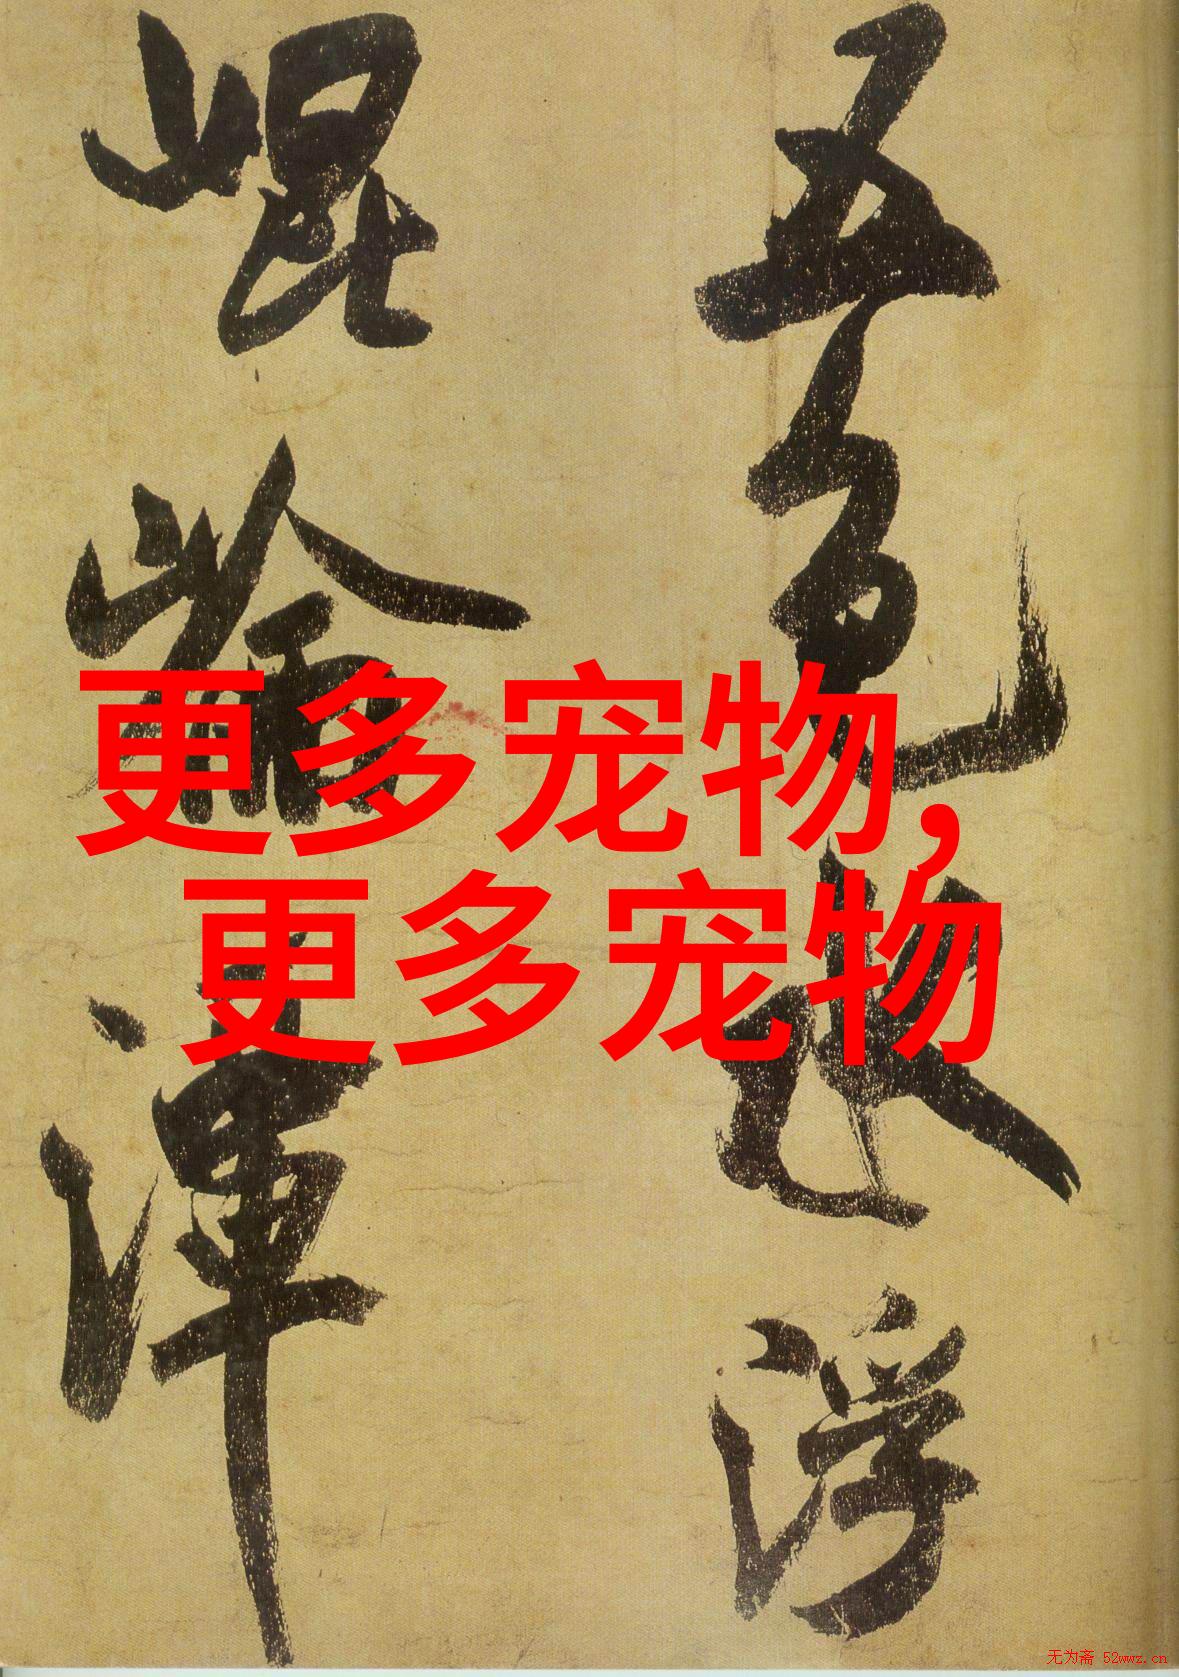 五色水浮
崐崘渾
更多宠物,
更多宠物
无为斋 52wwz.cn